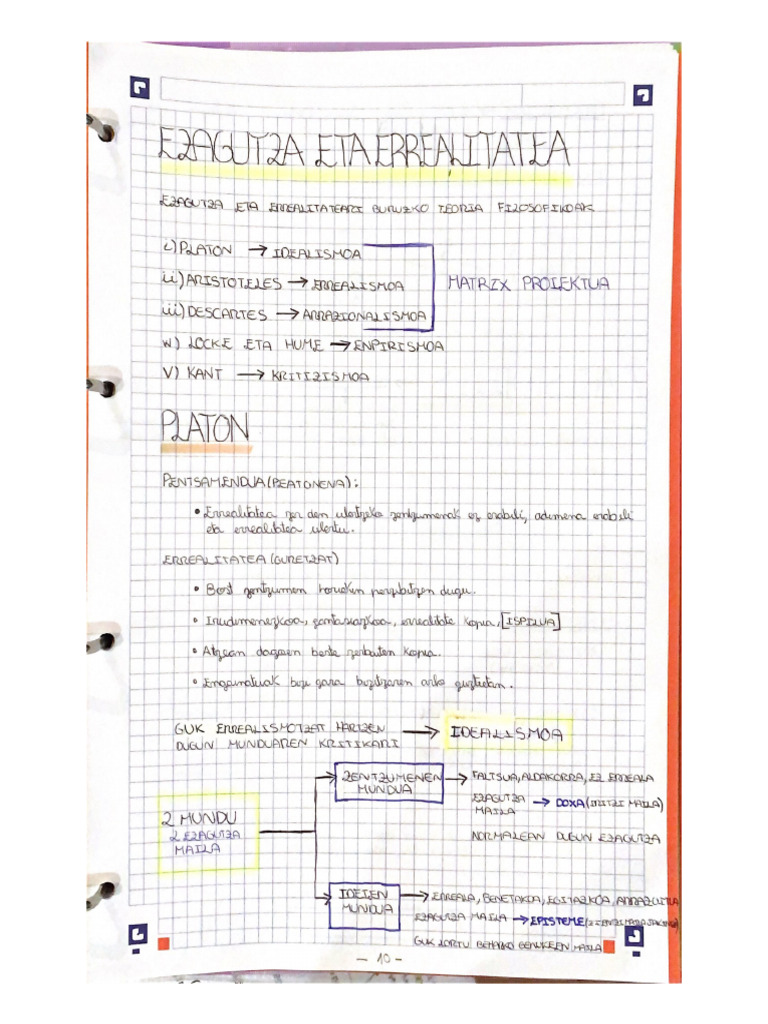 EZAGUTZA ETA ERREALITATEA
EZAGUTZA ETA ERREALITATEARI BURUZKO TEORIA FILOSOFIKOAK
i) PLATON → IDEALISMOA
ii) ARISTOTELES → ERREALISMOA
iii) DESCARTES → ARRAZIONALISMOA
MATRIX PROIEKTUA
iv) LOCKE ETA HUME → ENPIRISMOA
V) KANT → KRITIZISMOA
PLATON
PENTSAMENDUA (PLATONENA):
• Errealitatea zer den ulertzeko zentzumenak ez erabili, adimena erabili
eta errealitatea ulertu.
ERREALITATEA (GURETZAT)
• Bost zentzumen horiekin pertzibitzen dugu.
• Irudimenezkoa, fantasiazkoa, errealitate kopia, [ISPILUA]
• Atzean dagoen beste zerbaiten kopia.
• Engainatuak bizi gara bizitzaren arlo guztietan.
GUK ERREALISMOTZAT HARTZEN
DUGUN MUNDUAREN KRITIKARI → IDEALISMOA
2 MUNDU
2 EZAGUTZA
MAILA
ZENTZUMENEN
MUNDUA
→ FALTSUA, ALDAKORRA, EZ ERREALA
EZAGUTZA
MAILA → DOXA (IRITZI MAILA)
NORMALEAN DUGUN EZAGUTZA
IDEIEN
MUNDUA
→ ERREALA, BENETAKOA, EGITAZKOA, ARRAZOIZKOA
EZAGUTZA MAILA → EPISTEME
GUK LORTU BEHARKO GENUKEEN MAILA
- 10 -